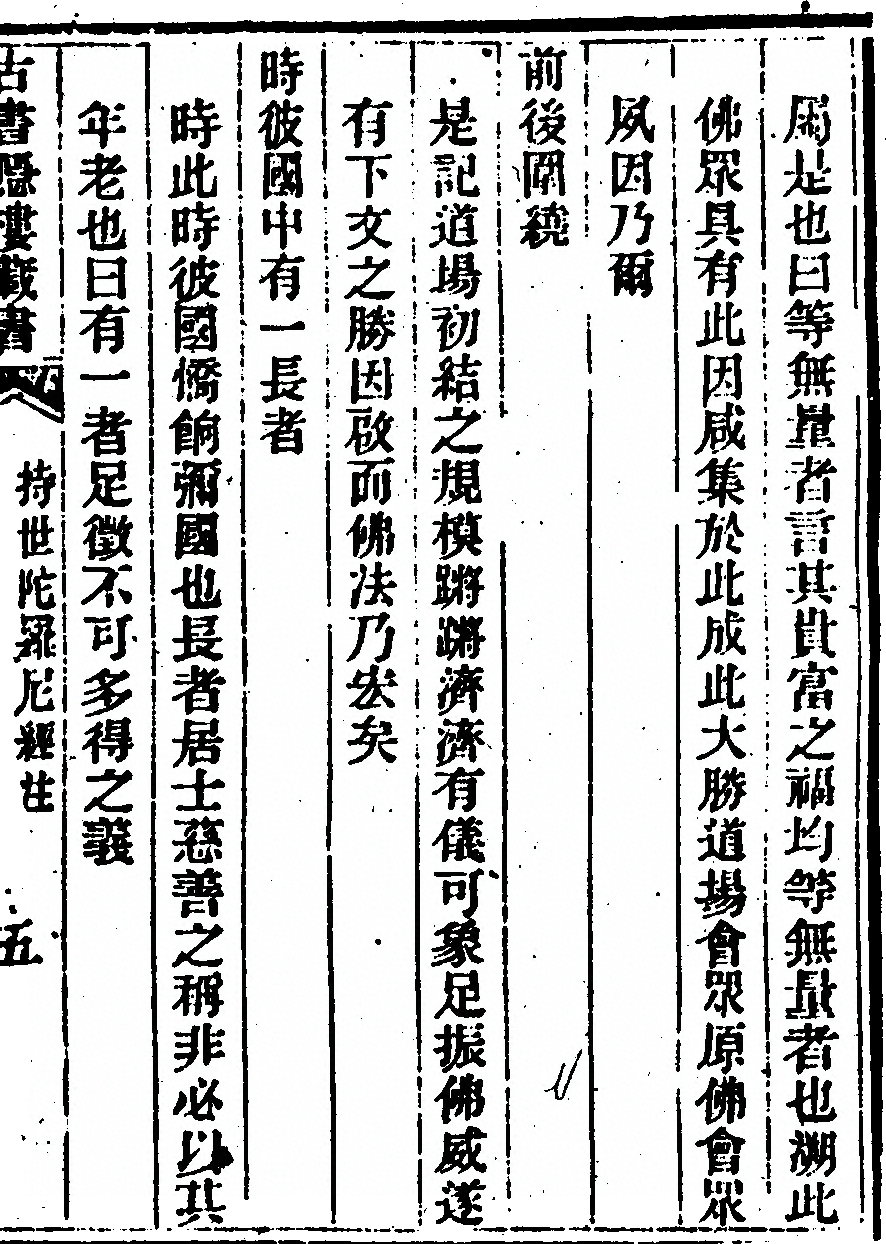 周是也曰等無量者言其貴富之福均等無量者也溯此
佛眾具有此因咸集於此成此大勝道場會眾原佛會眾
夙因乃爾
前後圍繞
是記道場初結之規模蹡蹡濟濟有儀可象足振佛威遂
有下文之勝因啟而佛法乃宏矣
時彼國中有一長者
時此時彼國憍餉彌國也長者居士慈善之稱非必以其
年老也曰有一者足徵不可多得之義
古書隱樓藏書
持世陀羅尼經註
五